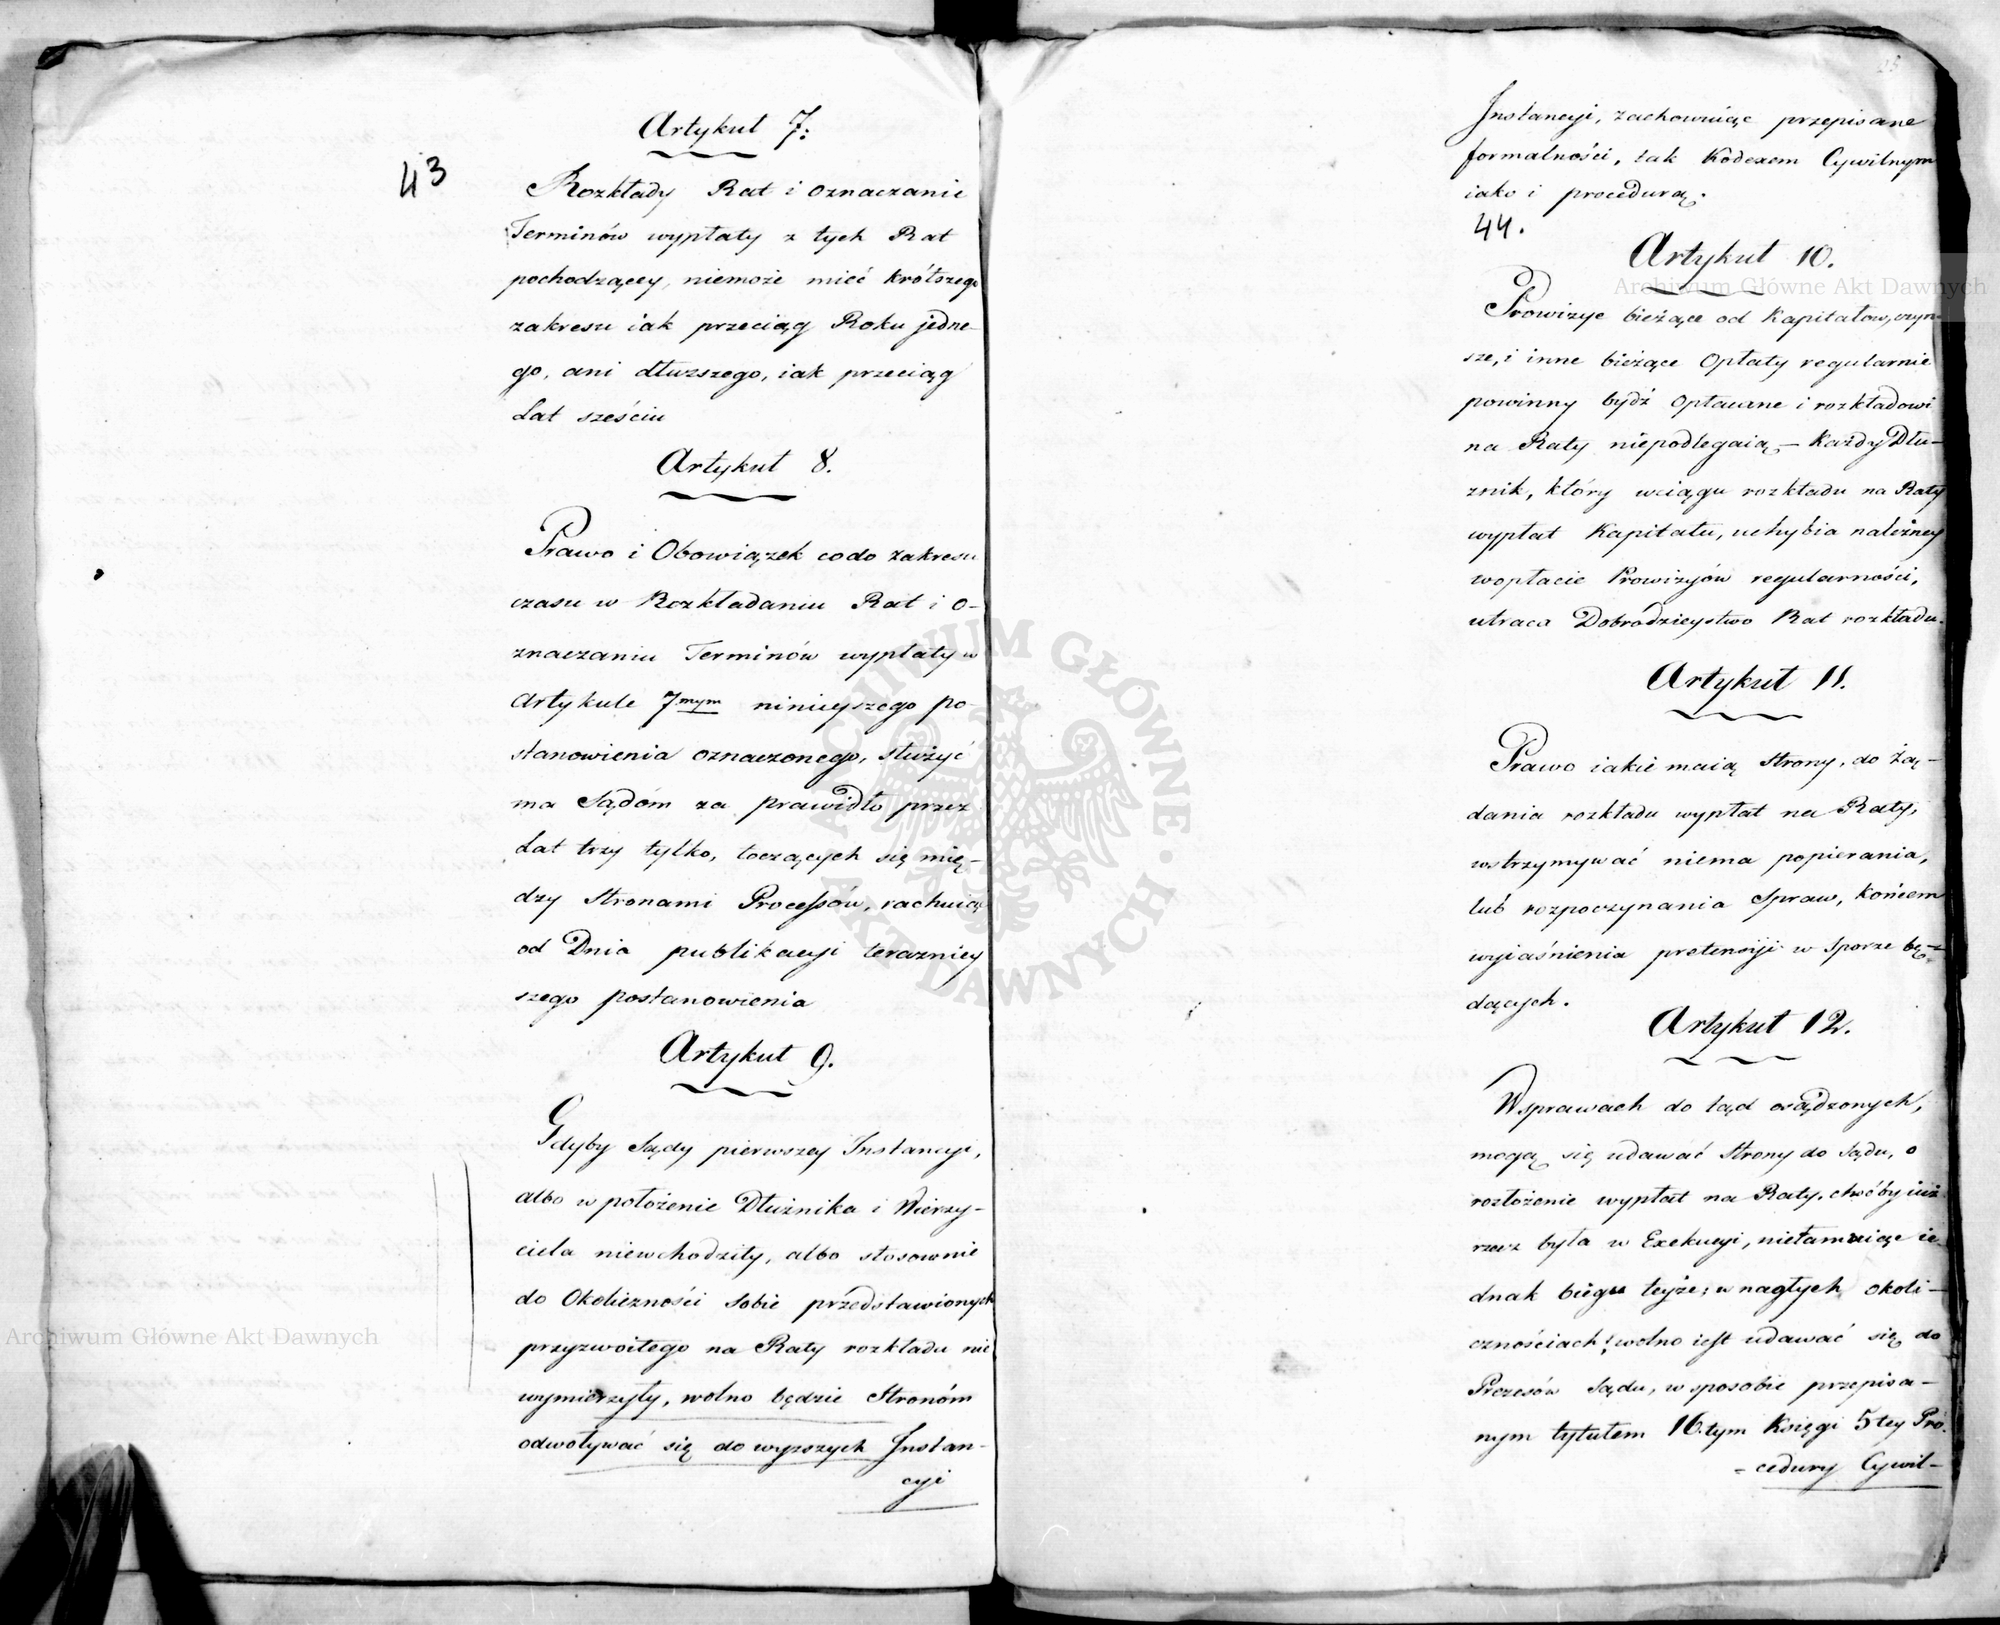 Artykuł 7:
43
Rozkłady Rat i oznaczanie
Terminów wypłaty z tych Rat
pochodzącey, niemoże mieć krótszego
zakresu iak przeciąg Roku jedne-
go, ani dłuższego, iak przeciąg
Lat sześciu
Artykuł 8.
Prawo i Obowiązek codo zakresu
czasu w Rozkładaniu Rat i o-
znaczaniu Terminów wypłaty w
Artykule 7mym ninieyszego po-
stanowienia oznaczonego, służyć
ma Sądóm za prawidło przez
Lat trzy tylko, toczących się mię-
dzy Stronami Processów, rachuiąc
od Dnia publikacyi teraźniey
szego postanowienia
Artykuł 9.
Gdyby Sądy pierwszey Instancyi,
albo w położenie Dłużnika i Wierzy-
ciela niewchodziły, albo stosownie
do Okoliczności sobie przedstawionych
przyzwoitego na Raty rozkładu nie
wymierzyły, wolno będzie Stronóm
odwoływać się do wyzszych Instan-
cyi
25
Instancyi, zachowuiąc przepisane
formalności, tak Kodexem Cywilnym
iako i procedurą.
44.
Artykuł 10.
Prowizye bieżące od Kapitałow, czyn-
sze, i inne bieżące Opłaty regularnie
powinny bydź Opłacane i rozkładowi
na Raty niepodlegaią – Każdy Dłu-
znik, który wciągu rozkładu na Raty
wypłat Kapitału, uchybia należney
wopłacie Prowizyów regularności,
utraca Dobrodzieystwo Rat rozkładu.
Artykuł 11.
Prawo iakie maią Strony, do Żą-
dania rozkładu wypłat na Raty,
wstrzymywać niema popierania,
lub rozpoczynania Spraw, Końcem
wyiaśnienia pretensyi w Sporze bę-
dących.
Artykuł 12.
W sprawach do tąd osądzonych,
mogą się udawać Strony do Sądu, o
rozłożenie wypłat na Raty, choćby iuż
rzecz była w Exekucyi, nietamuiąc ie-
dnak biegu teyże; w nagłych okoli-
cznościach wolno iest udawać się do
Prezesów Sądu, w sposobie przepisa-
nym tytułem 16.tym Księgi 5tey Pro-
-cedury Cywil-
Archiwum Główne Akt Dawnych
Archiwum Główne Akt Dawnych
ARCHIWUM GŁÓWNE AKT DAWNYCH